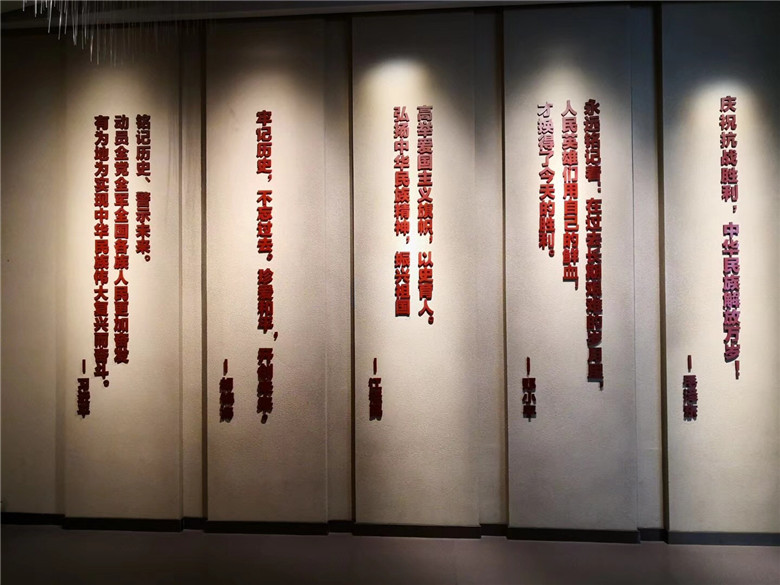 庆祝抗战胜利，中华民族解放万岁！
—毛泽东
永远铭记着：在过去长期艰难的岁月里，
人民英雄们用自己的鲜血，
才换得了今天的胜利。
—邓小平
高举爱国主义旗帜，以史育人。
弘扬中华民族精神，振兴祖国
—江泽民
牢记历史，不忘过去，珍爱和平，开创未来，
—胡锦涛
铭记历史、警示未来。
动员全党全军全国各族人民更加奋发
有为地为实现中华民族伟大复兴而奋斗。
—习近平